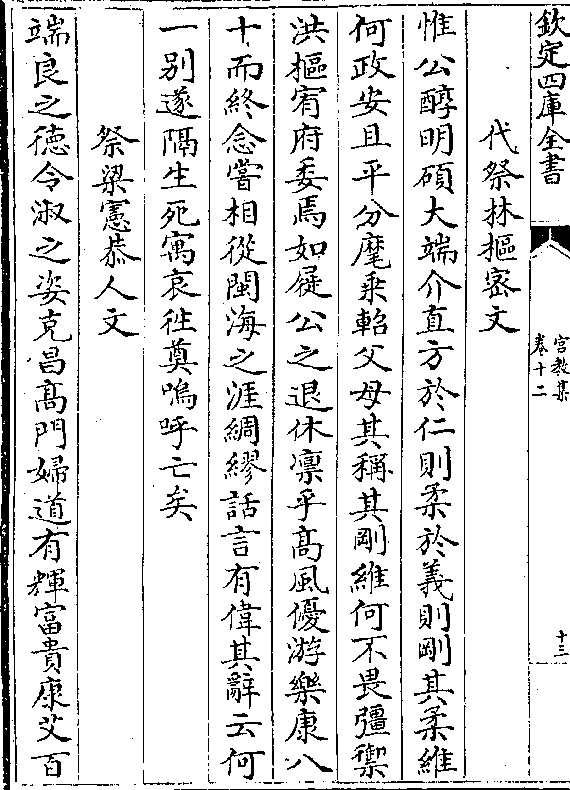 欽定四庫全書
宫教集
卷十二
十三
代祭林樞密文
惟公醇明碩大端介直方於仁則柔於義則剛其柔維
何政安且平分麾乗軺父母其稱其剛維何不畏彊禦
洪樞宥府委焉如屣公之退休凛乎髙風優游樂康八
十而終念嘗相從閩海之涯綢繆話言有偉其辭云何
一别遂隔生死寓哀徃奠嗚呼亡矣
祭梁憲恭人文
端良之德令淑之姿克昌髙門婦道有輝富貴康艾百